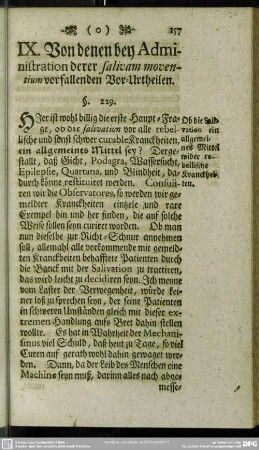 ( o ) 157
IX. Von denen bey Admi-
nistration derer salivam moven-
tium vorfallenden Vor-Urtheilen.
§. 229.
HIer ist wohl billig die erste Haupt-Fra-
ge, ob die salivation vor alle rebel-
lische und sonst schwer curable Kranckheiten,
ein allgemeines Mittel sey? Derge-
stallt, daß Gicht, Podagra, Wassersucht,
Epilepsie, Quartana, und Blindheit, da-
durch könne restituiret werden. Consuli-
ren wir die Observatores, so werden von ge-
meldter Kranckheiten eintzele und rare
Exempel hin und her finden, die auf solche
Weise sollen seyn curiret worden. Ob man
nun dieselbe zur Richt-Schnur annehmen
soll, allemahl alle vorkommende mit gemeld-
ten Kranckheiten behafftete Patienten durch
die Banck mit der Salivation zu tractiren,
das wird leicht zu decidiren seyn. Ich meyne
vom Laster der Verwegenheit, würde kei-
ner loß zu sprechen seyn, der seine Patienten
in schweren Umständen gleich mit dieser ex-
tremen Handlung aufs Bret dahin stellen
wollte. Es hat in Wahrheit der Mechani-
smus viel Schuld, daß heut zu Tage, so viel
Curen auf gerath wohl dahin gewaget wer-
den. Dann, da der Leib des Menschen eine
Machine seyn muß, darinn alles nach abge-
messe-
Ob die Sali-
vation ein
allgemei-
nes Mittel
wider re-
bellische
Kranckhei-
ten.